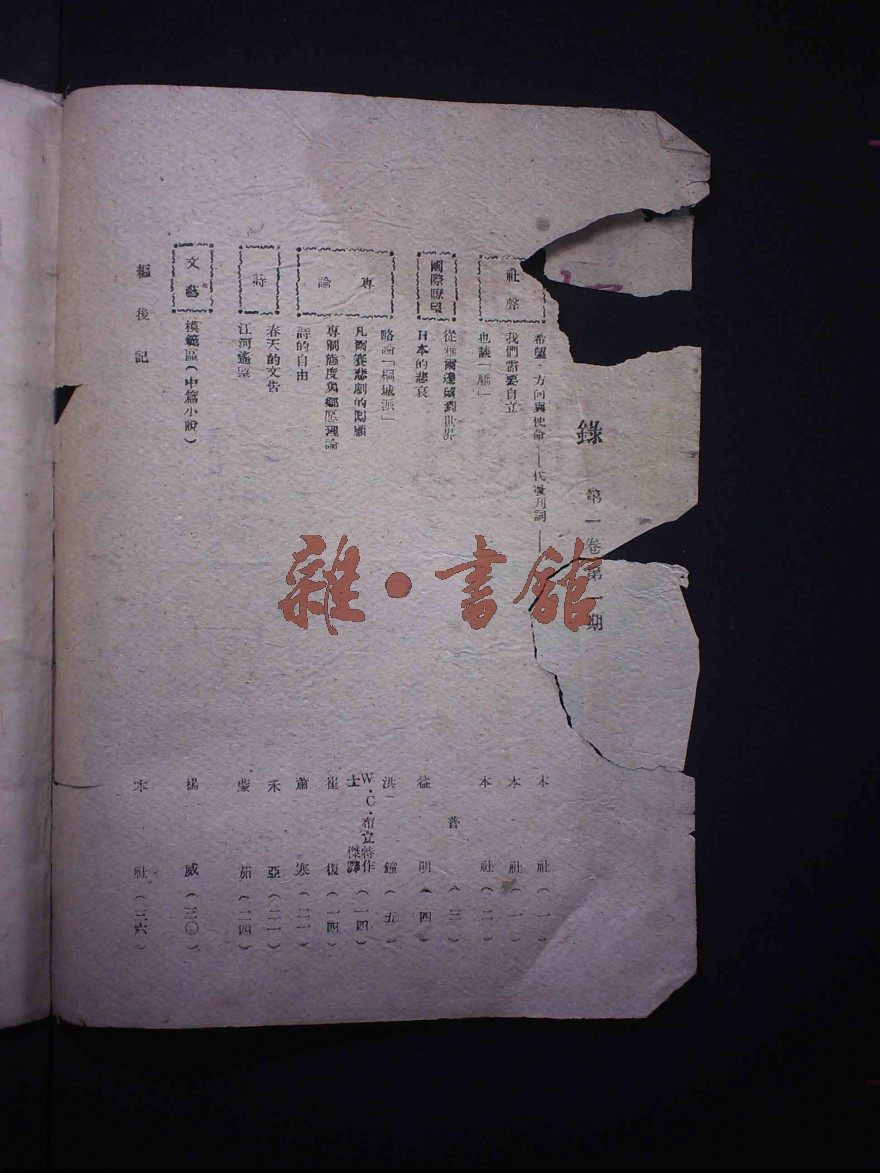 錄
第一卷第一期
社聲
希望·方向與使命——代發刊詞—— 本社(一)
我們需要自立 本社(一)
也談「驕」 本社(二)
國際瞭望
從雅爾達望到世界 普(三)
日本的悲哀 益明(四)
專論
略論「桐城派」 洪鐘(五)
凡爾賽悲劇的回顧 W·C·布立特作 士傑譯(一四)
專制態度與鄉愿理論 崔復(一四)
詩的自由 蕭寒(二一)
詩
春天的文告 禾亞(二一)
江河遙寄 蒙茄(二四)
文藝
模範區(中篇小說) 楊威(三〇)
編後記 本社(三六)
雜·書館